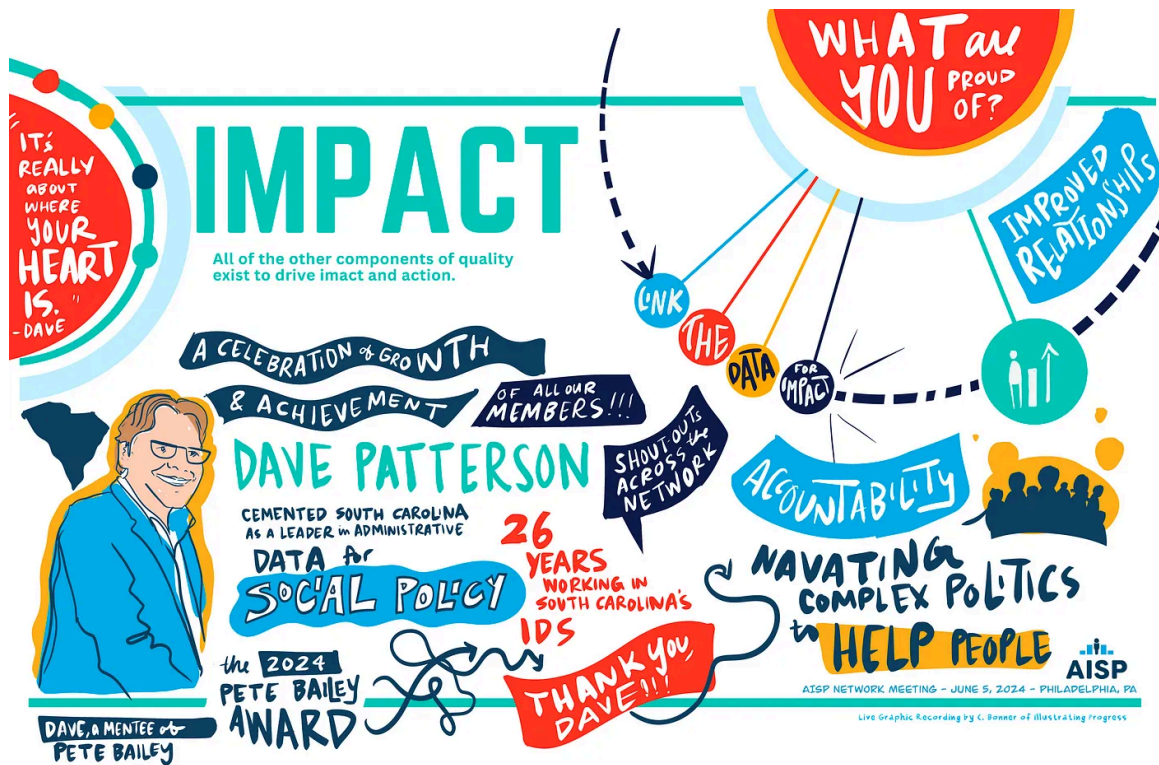 "IT's
REALLY
ABOUT
WHERE
YOUR
HEART
IS."
-DAVE
IMPACT
All of the other components of quality
exist to drive imact and action.
WHAT are
YOU PROUD
OF?
IMPROVED
RELATIONSHIPS
LINK
THE
DATA
FOR
IMPACT
A CELEBRATION of GROWTH
& ACHIEVEMENT
OF ALL OUR
MEMBERS!!!
SHOUT-OUTS
ACROSS the
NETWORK
DAVE PATTERSON
CEMENTED SOUTH CAROLINA
AS A LEADER in ADMINISTRATIVE
DATA for
SOCIAL POLICY
26
YEARS
WORKING IN
SOUTH CAROLINA'S
IDS
the 2024
PETE BAILEY
AWARD
THANK YOU,
DAVE!!!
DAVE, a MENTEE of
PETE BAILEY
ACCOUNTABILITY
NAVATING
COMPLEX POLITICS
to HELP PEOPLE
AISP
AISP NETWORK MEETING - JUNE 5, 2024 - PHILADELPHIA, PA
Live Graphic Recording by C. Bonner of Illustrating Progress